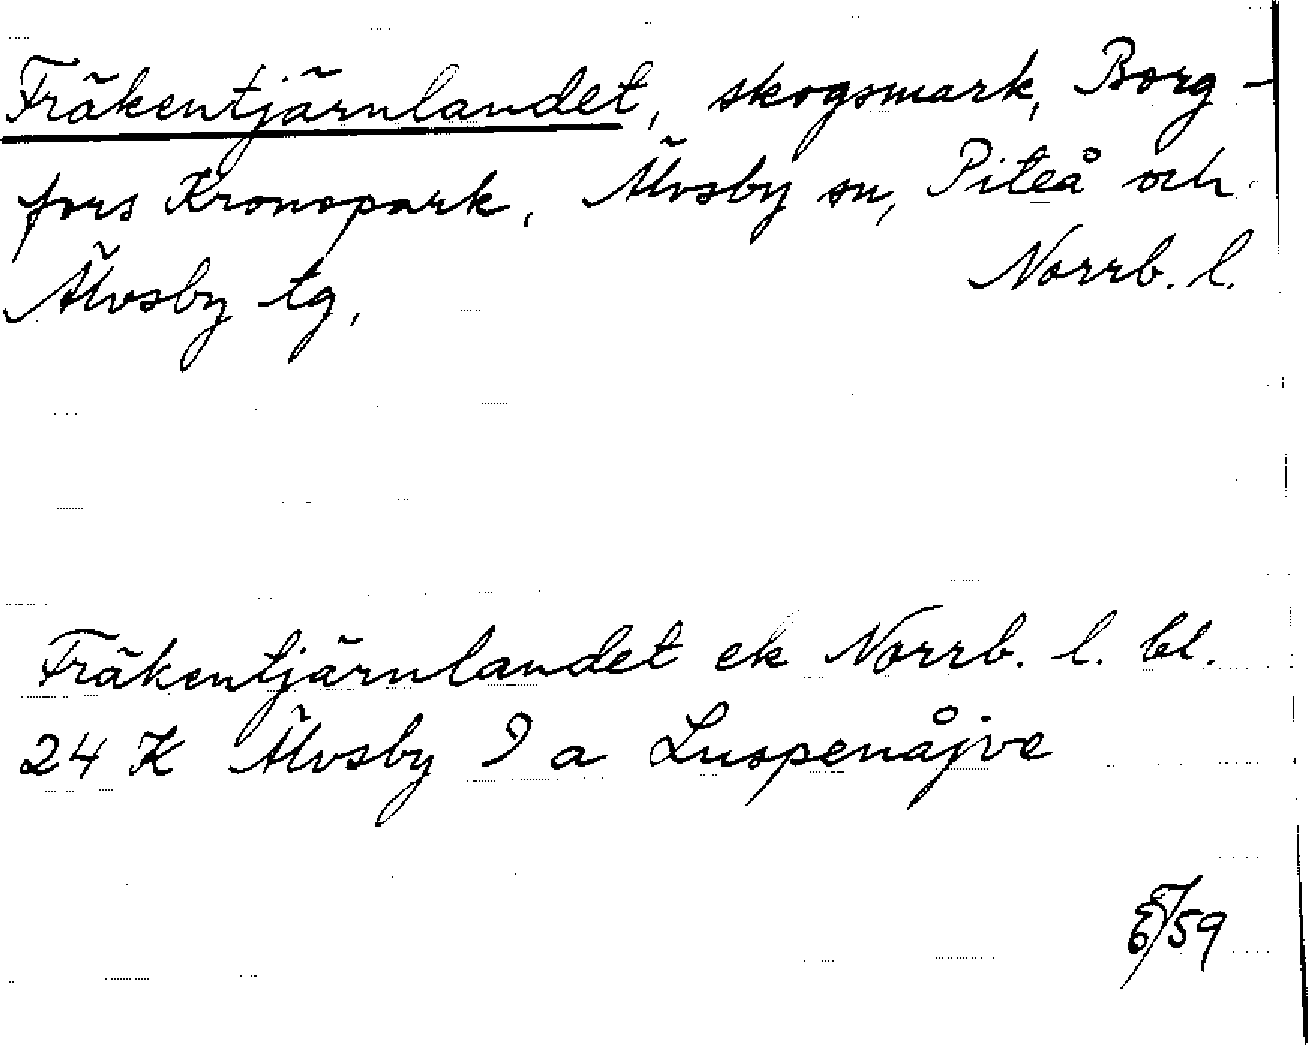 Fräkentjärnlandet, skogsmark, Borg-
fors Kronopark, Älvsby sn, Piteå och
Älvsby tg, Norrb. l.
Fräkentjärnlandet ek Norrb. l. bl.
24 K Älvsby 9 a Luspenåjve
/59